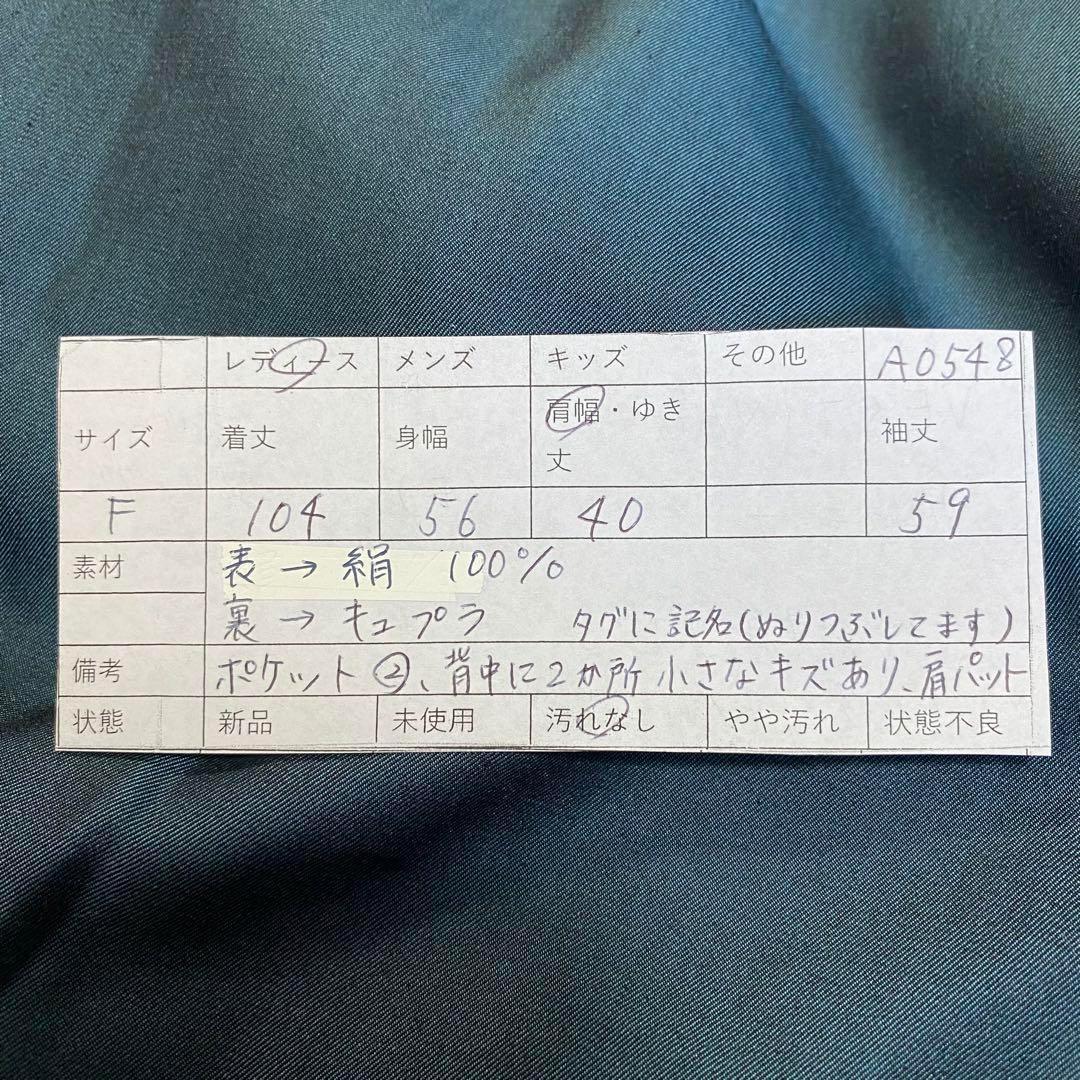 レディース メンズ キッズ その他 A0548
サイズ 着丈 身幅 肩幅・ゆき丈 袖丈
F 104 56 40 59
素材 表→絹 100%
裏→キュプラ タグに記名(ぬりつぶしてます)
備考 ポケット②、背中に2か所小さなキズあり、肩パット
状態 新品 未使用 汚れなし やや汚れ 状態不良